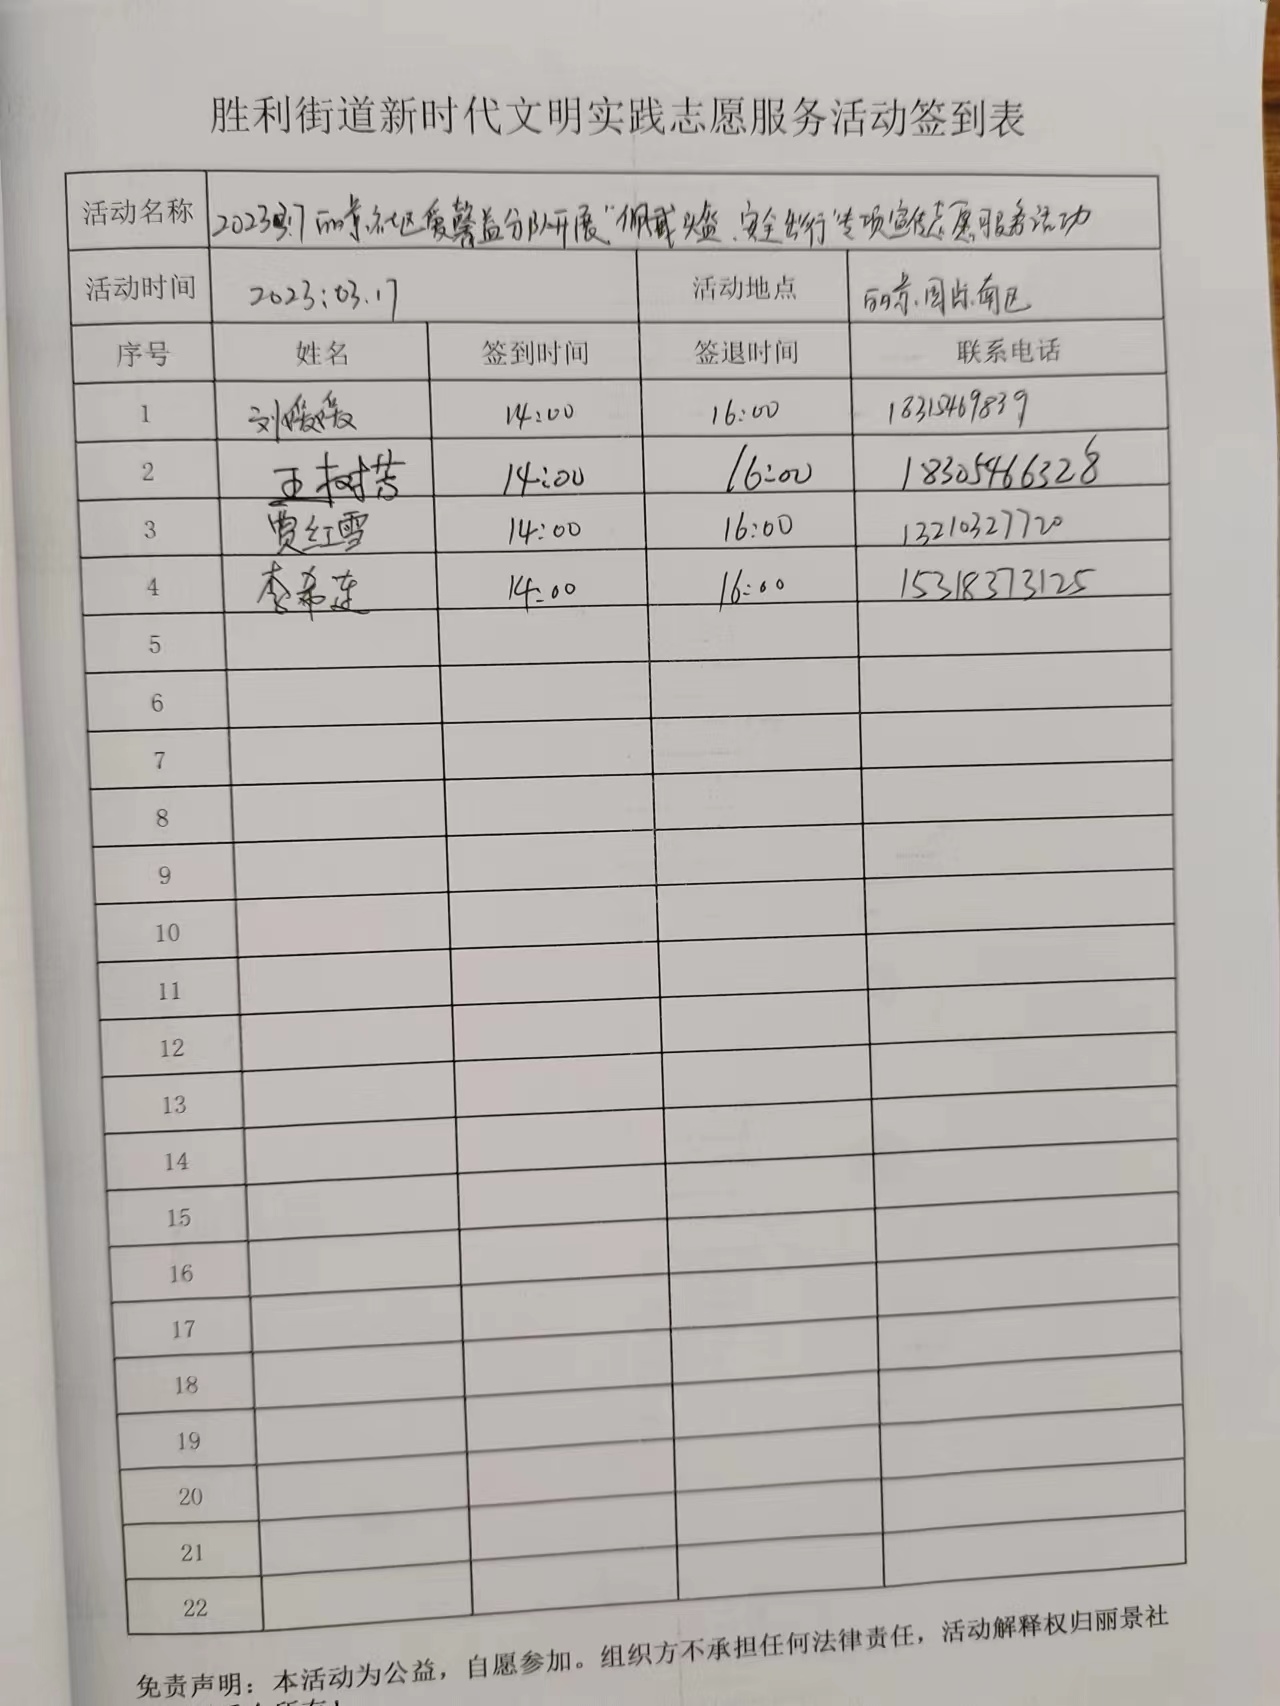 胜利街道新时代文明实践志愿服务活动签到表
活动名称 2023.3.17丽景社区爱馨益分队开展"佩戴头盔、安全出行"专项宣传志愿服务活动
活动时间 2023.03.17 活动地点 丽景国际南区
序号 姓名 签到时间 签退时间 联系电话
1 刘媛媛 14:00 16:00 18315469839
2 王树芳 14:00 16:00 18305466328
3 贾红雪 14:00 16:00 13210327720
4 李希连 14:00 16:00 15318373125
5
6
7
8
9
10
11
12
13
14
15
16
17
18
19
20
21
22
免责声明：本活动为公益，自愿参加。组织方不承担任何法律责任，活动解释权归丽景社